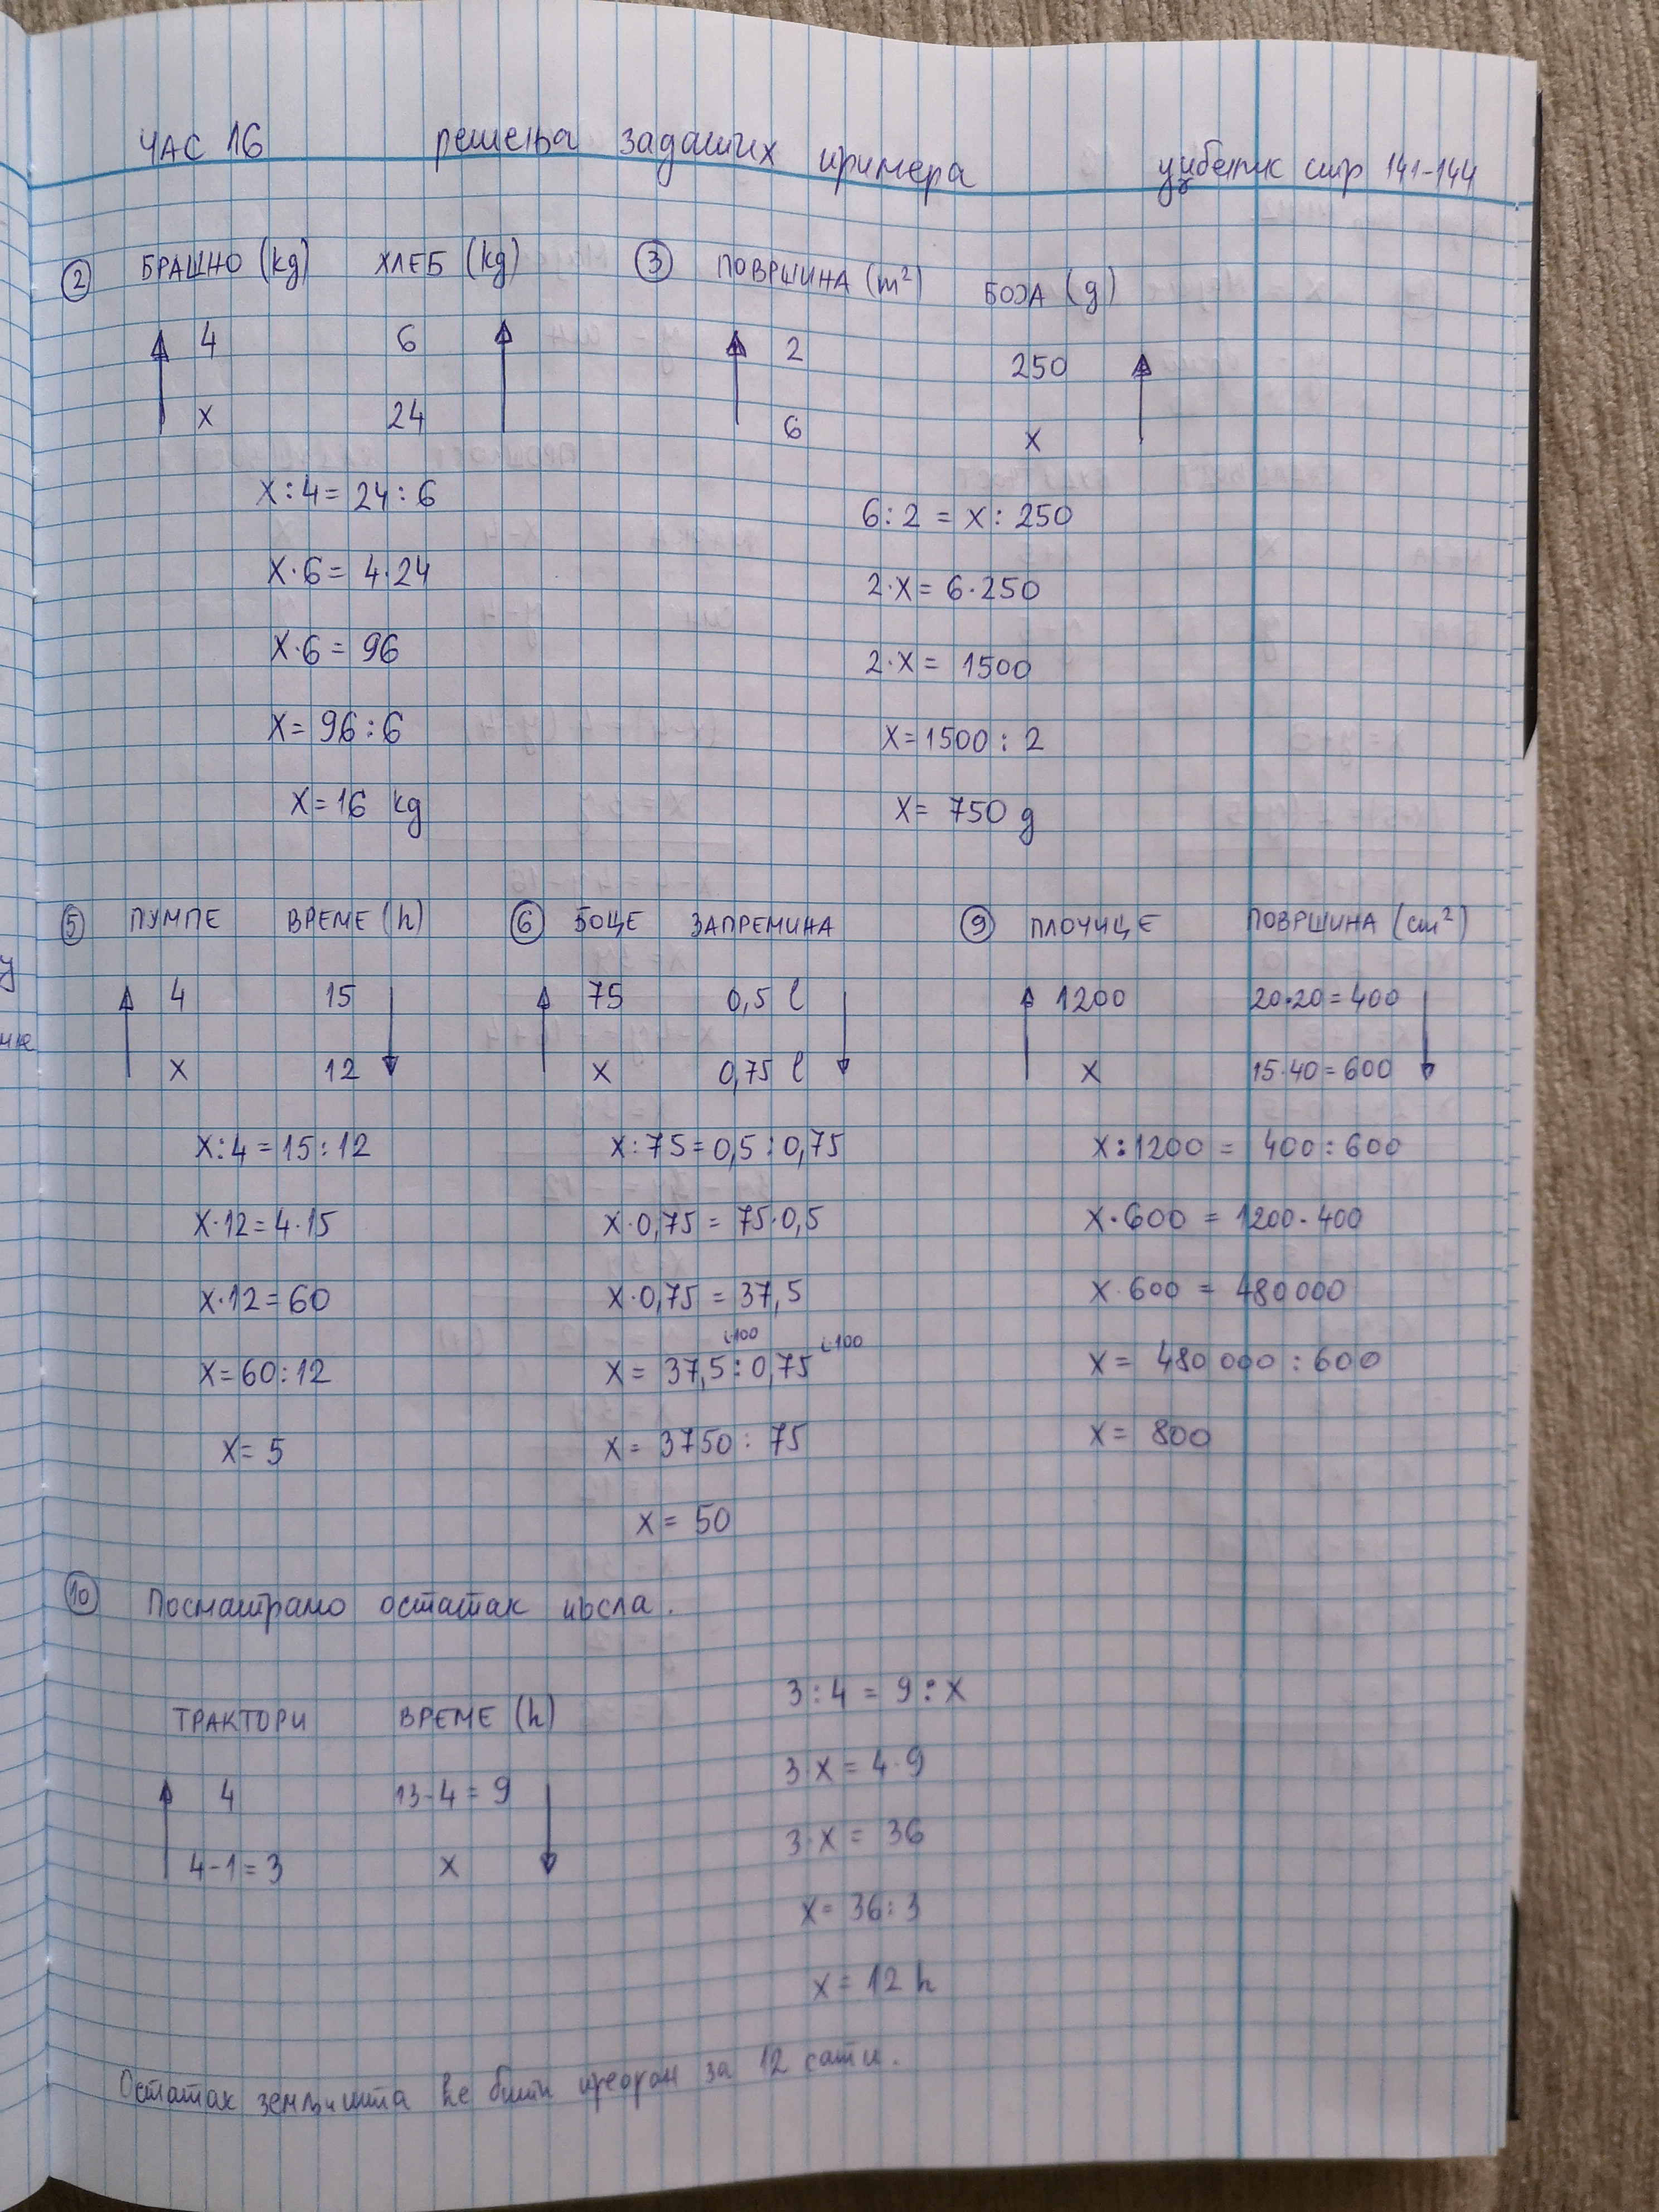 ЧАС 16 решења задатих примера уџбеник стр 141-144
② БРАШНО (kg) ХЛЕБ (kg)
4 6
x 24
x:4=24:6
x·6=4·24
x·6=96
x=96:6
x=16 kg
③ ПОВРШИНА (m²) БОЈА (g)
2 250
6 x
6:2=x:250
2·x=6·250
2·x=1500
x=1500:2
x=750 g
⑤ ПУМПЕ ВРЕМЕ (h)
4 15
x 12
x:4=15:12
x·12=4·15
x·12=60
x=60:12
x=5
⑥ БОЦЕ ЗАПРЕМИНА
75 0,5 l
x 0,75 l
x:75=0,5:0,75
x·0,75=75·0,5
x·0,75=37,5
x=37,5:0,75
x=3750:75
x=50
⑨ ПЛОЧИЦЕ ПОВРШИНА (cm²)
1200 20·20=400
x 15·40=600
x:1200=400:600
x·600=1200·400
x·600=480000
x=480000:600
x=800
⑩ Посматрамо остатак посла.
ТРАКТОРИ ВРЕМЕ (h)
4 13-4=9
4-1=3 x
3:4=9:x
3·x=4·9
3·x=36
x=36:3
x=12 h
Остатак земљишта ће бити преоран за 12 сати.